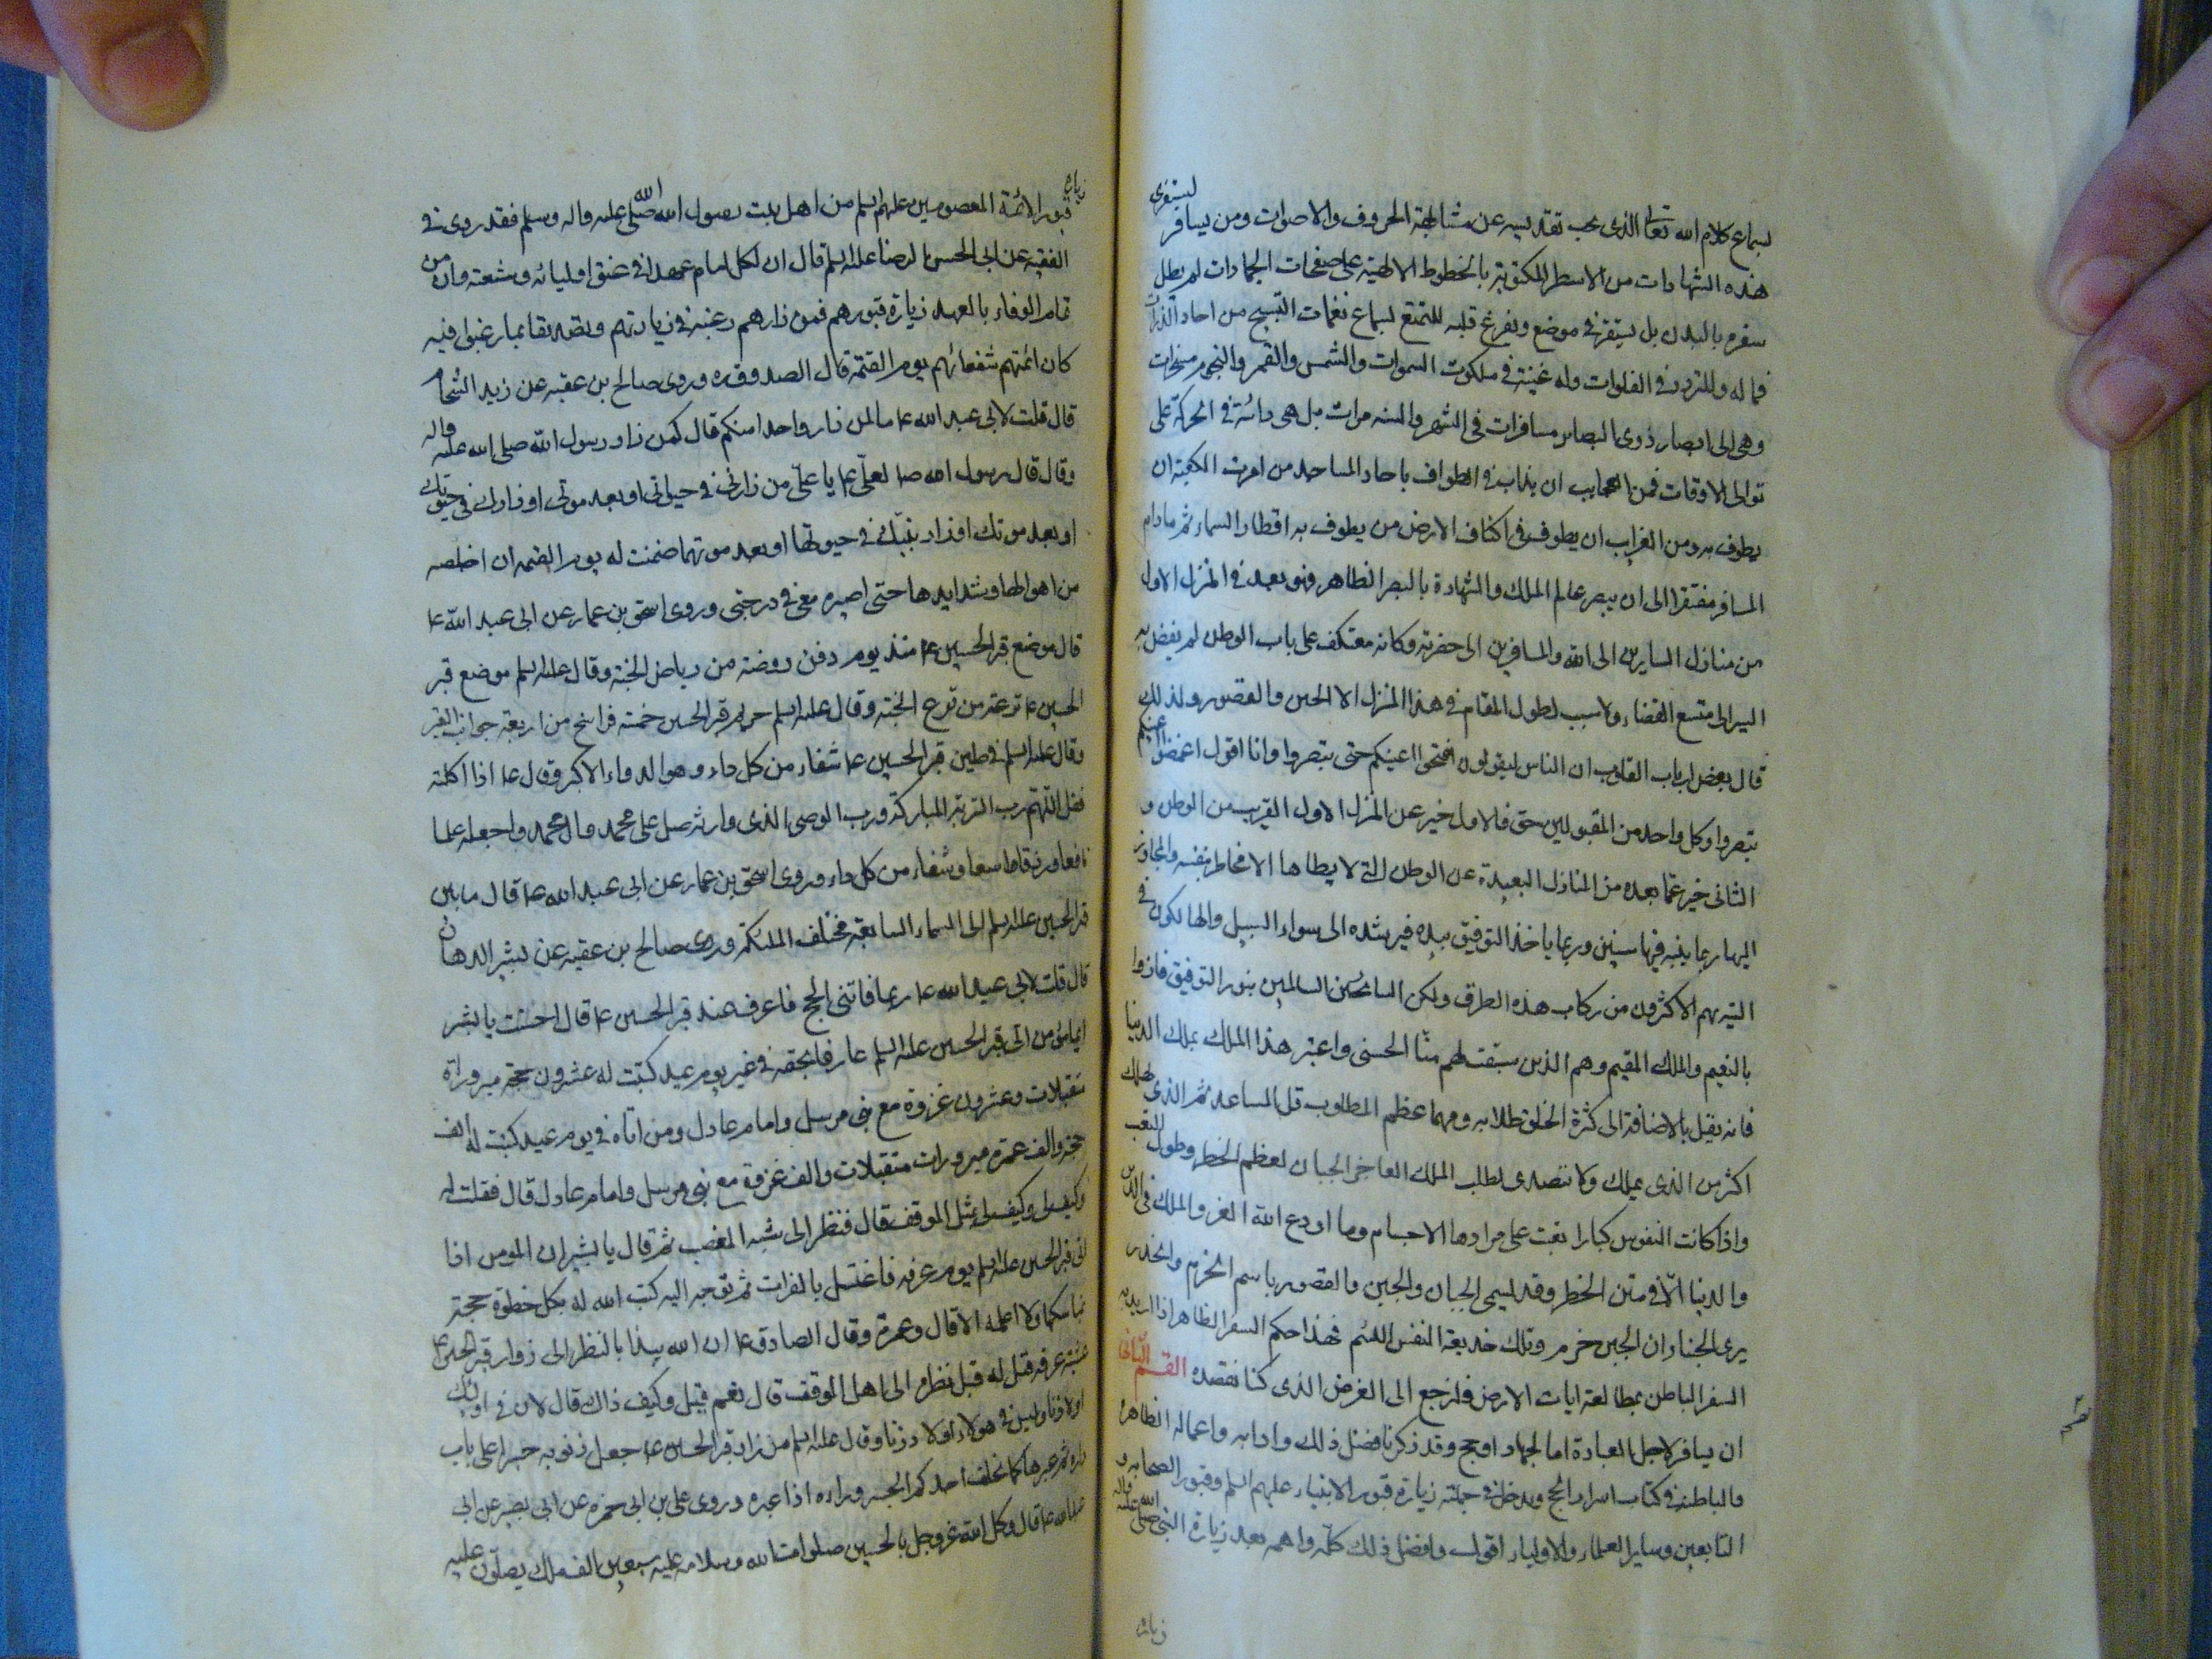 لسماع كلام الله تعالى الذى يجب تقديسه عن مشابهة الحروف والاصوات ومن يسافر ليستقرى
هذه الشهادات من الاسطر المكتوبة بالخطوط الالهية على صفحات الجمادات لم يطل
سفره بالبدن بل يستقر فى موضع ويفرغ قلبه للتمتع لسماع نغمات التسبيح من احاد الذرات
فماله وللتردد فى الفلوات وله غنية فى ملكوت السموات والشمس والقمر والنجوم مسخرات
وهى الى ابصار ذوى البصاير مسافرات فى الشهر والسنه مرات بل هى دائبة فى الحركة على
توالى الاوقات فمن العجايب ان يداب فى الطواف باحاد المساجد من امرت الكعبة ان
يطوف به ومن الغرايب ان يطوف فى اكناف الارض من يطوف به اقطار السماء ثم مادام
المسافر مفتقرا الى ان يبصر عالم الملك والشهادة بالبصر الظاهر فهو بعد فى المنزل الاول
من منازل السايرين الى الله والمسافرين الى حضرته وكانه معتكف على باب الوطن لم يفض به
السير الى متسع الفضاء ولا سبب لطول المقام فى هذا المنزل الا الجبن والقصور ولذلك
قال بعض ارباب القلوب ان الناس ليقولون افتحوا اعينكم حتى تبصروا وانا اقول اغمضوا اعينكم
تبصروا وكل واحد من المقولين حق فالاول خبر عن المنزل الاول القريب من الوطن و
الثانى خبر عما بعده من المنازل البعيدة عن الوطن التى لا يطاها الا مخاطر بنفسه والمجاوز
اليها ربما يتيه فيها سنين وربما ياخذ التوفيق بيده فيرشده الى سواء السبيل والهالكون فى
التيه هم الاكثرون من ركاب هذه الطرق ولكن السائحين السالمين بنور التوفيق فازوا
بالنعيم والملك المقيم وهم الذين سبقت لهم منا الحسنى واعتبر هذا الملك بملك الدنيا
فانه يقل بالاضافة الى كثرة الخلق طلابه ومهما عظم المطلوب قل المساعد ثم الذى يهلك
اكثر من الذى يملك ولا يتصدى لطلب الملك العاجز الجبان لعظم الخطر وطول التعب
واذا كانت النفوس كبارا تعبت على مرادها الاجسام وما اودع الله العز والملك فى الدين
والدنيا الا فى متن الخطر وقد يسمى الجبان والجبن والقصور باسم الحزم والحذر
يرى الجبناء ان الجبن حزم وتلك خديعة النفس اللئم فهذا حكم السفر الظاهر اذا اريد به
السفر الباطن بمطالعة ايات الارض فلنرجع الى الغرض الذى كنا نقصده القسم الثانى
ان يسافر لاجل العبادة اما لجهاد او حج وقد ذكرنا فضل ذلك وادابه واعماله الظاهرة
والباطنة فى كتاب اسرار الحج ويدخل فى جملته زيارة قبور الانبياء عليهم السلم وقبور الصحابه و
التابعين وساير العلماء والاولياء اقول وافضل ذلك كله واهمه بعد زيارة النبى صلى الله عليه واله
زيارة
زيارة
قبور الائمة المعصومين عليهم السلم من اهل بيت رسول الله صلى الله عليه واله وسلم فقد روى فى
الفقيه عن ابى الحسن الرضا عليه السلم قال ان لكل امام عهدا فى عنق اوليائه وشيعته وان من
تمام الوفاء بالعهد زيارة قبورهم فمن زارهم رغبة فى زيارتهم وتصديقا بما رغبوا فيه
كان ائمتهم شفعائهم يوم القيمة قال الصدوق ره وروى صالح بن عقبه عن زيد الشحام
قال قلت لابى عبد الله ع ما لمن زار واحدا منكم قال كمن زار رسول الله صلى الله عليه واله
وقال قال رسول الله ص لعلى ع يا على من زارنى فى حياتى او بعد موتى او زارك فى حيوتك
او بعد موتك او زار ابنيك فى حيوتهما او بعد موتهما ضمنت له يوم القيمه ان اخلصه
من اهوالها وشدايدها حتى اصيره معى فى درجتى وروى اسحق بن عمار عن ابى عبد الله ع
قال موضع قبر الحسين ع منذ يوم دفن روضة من رياض الجنة وقال عليه السلم موضع قبر
الحسين ع ترعة من ترع الجنة وقال عليه السلم حريم قبر الحسين خمسة فراسخ من اربعة جوانب القبر
وقال عليه السلم فى طين قبر الحسين ع شفاء من كل داء وهو الدواء الاكبر وقال ع اذا اكلته
فقل اللهم رب التربة المباركة ورب الوصى الذى وارثه صل على محمد وال محمد واجعله علما
نافعا ورزقا واسعا وشفاء من كل داء وروى اسحق بن عمار عن ابى عبد الله ع قال ما بين
قبر الحسين عليه السلم الى السماء السابعة مختلف الملئكة وروى صالح بن عقبه عن بشير الدهان
قال قلت لابى عبد الله ع ربما فاتنى الحج فاعرف عند قبر الحسين ع قال احسنت يا بشير
ايما مؤمن اتى قبر الحسين عليه السلم عارفا بحقه فى غير يوم عيد كتبت له عشرون حجة مبروراة
متقبلات وعشرون غزوة مع نبى مرسل وامام عادل ومن اتاه فى يوم عيد كتبت له الف
حجة والف عمرة مبرورات متقبلات والف غزوة مع نبى مرسل وامام عادل قال فقلت له
وكيف لى وكيف لى بمثل الموقف قال فنظر الى شبه المغضب ثم قال يا بشير ان المومن اذا
اتى قبر الحسين عليه السلم يوم عرفه فاغتسل بالفرات ثم توجه اليه كتب الله له بكل خطوة حجة
بمناسكها ولا اعلمه الا قال وعمرة وقال الصادق ع ان الله يبدا بالنظر الى زوار قبر الحسين ع
عشية عرفه قيل له قبل نظره الى اهل الموقف قال نعم قيل وكيف ذاك قال لان فى اولئك
اولاد زنا وليس فى هولاء اولاد زنا وقال عليه السلم من زار قبر الحسين ع جعل ذنوبه جسرا على باب
داره ثم عبرها كما يخلف احدكم الجسر وراءه اذا عبره وروى على بن ابى حمزه عن ابى بصير عن ابى
عبد الله ع قال وكل الله عز وجل بالحسين صلوات الله وسلامه عليه سبعين الف ملك يصلون عليه